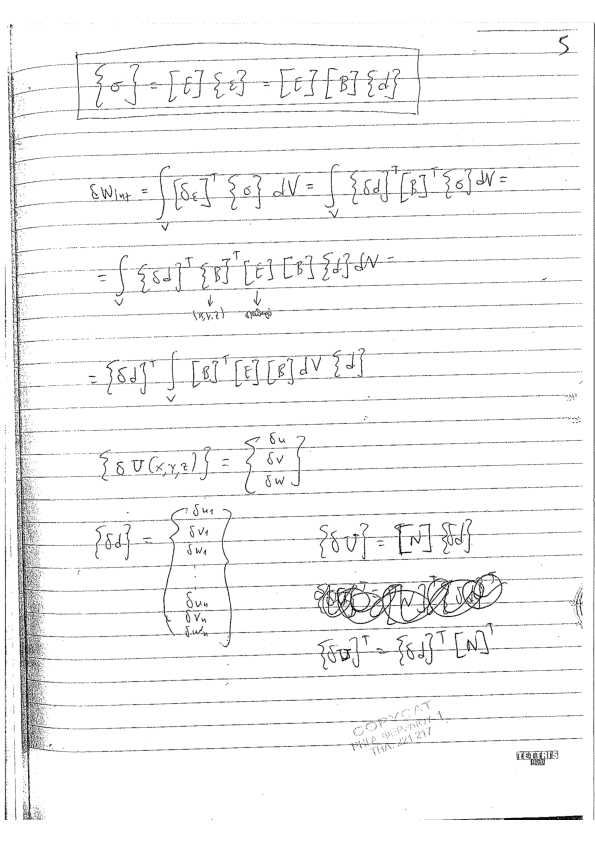 5
{σ} = [E] {ε} = [E] [B] {d}
δW_int = ∫_V [δε]^T {σ} dV = ∫_V {δd}^T [B]^T {σ} dV =
= ∫_V {δd}^T {B}^T [E] [B] {d} dV =
(x,y,z) σταθερό
= {δd}^T ∫_V [B]^T [E] [B] dV {d}
{δU(x,y,z)} = {δu δv δw}
{δd} = {δu1 δv1 δw1 ⋮ δun δvn δwn}
{δU} = [N] {δd}
{δU}^T = {δd}^T [N]^T
COPYCAT
ΤΗΛ. 221 217
TETTRIS